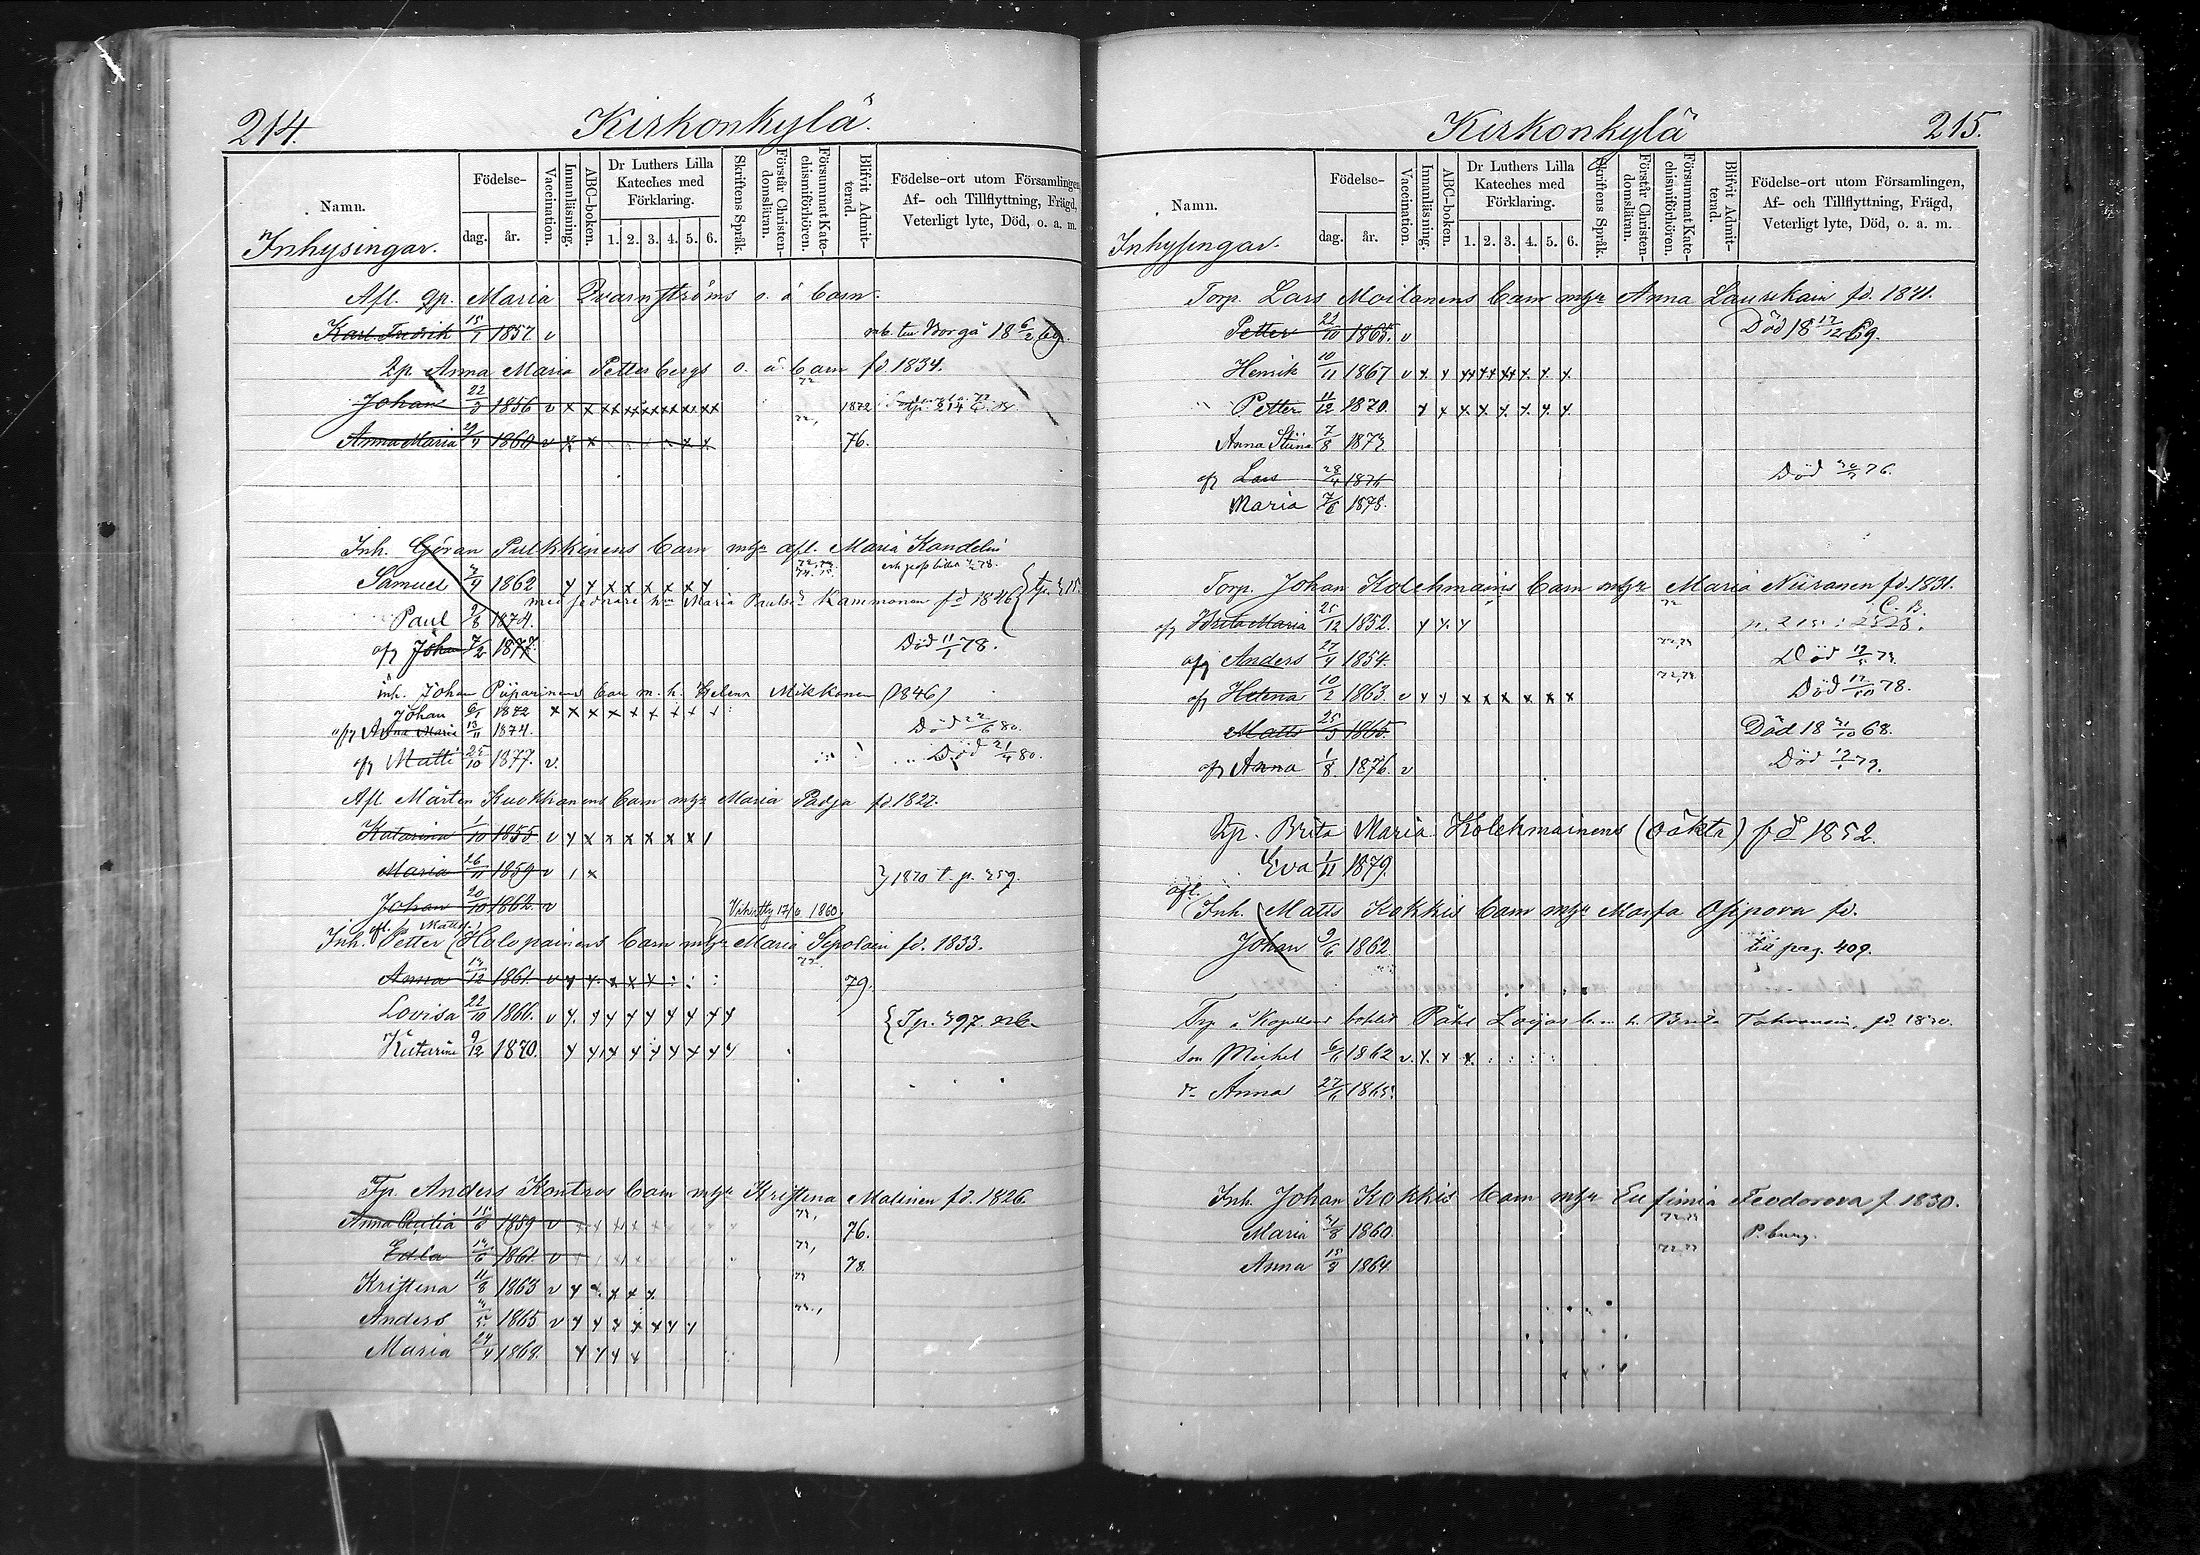 214.
Kirkonkylä.
Namn.
Födelse-
dag.
år.
Vaccination.
Innanläsning.
ABC-boken.
Dr Luthers Lilla
Kateches med
Förklaring.
1. 2. 3. 4. 5. 6.
Skriftens Språk.
Förstår Christen-
domsläran.
Försummat Kate-
chismiförhören.
Blifvit Admit-
terad.
Födelse-ort utom Församlingen,
Af- och Tillflyttning, Frägd,
Veterligt lyte, Död, o. a. m.
Inhysingar.
Afl. qp. Maria Qvarnströms o. ä barn.
Karl Fredrik 15/7 1857 v Borgå 18 6/2 69.
Qp Anna Maria Petterbergs o. ä barn fd. 1834.
Johan 22/3 1856 v x x x x x x x x x 1872
Anna Maria 29/7 1860 v x x 76.
Inh. Göran Pulkkinens barn mhr afl. Maria Kandelin
Samuel 1862 x x x x x x x x
Maria Kammonen fd 1846
Paul 9/8 1874.
Johan 7/2 1877. Död 11/1 78.
inh. Johan Piiparinens barn m. h. Helena Mikkonen (1846)
Johan 6/1 1872 x x x x x x x x x
Anna Maria 13/11 1874. Död 22/6 80.
Matti 25/10 1877. v. Död 21/4 80.
Afl Mårten Kuokkanens barn mhr Maria Padja fd. 1827.
Katarina 1/10 1855. v x x x x x x x
Maria 26/11 1859 v x } 1870 t. p. 359.
Johan 20/10 1862 v
17/6 1860
Inh. afl. Petter (Matts.) Holopainens barn mhr Maria Sepoläin fd. 1833.
Anna 1861 v x x x x x 79.
Lovisa 22/10 1866. v x x x x x x x x { Tp. 397.
Katarina 9/12 1870. x x x x x x x x x
Tp. Anders Kontros barn mhr Kristina Malinen fd. 1826.
Anna Cecilia 15/6 1859 v 76.
Edla 1861 v 78.
Kristina 11/8 1863 v x x x x
Anders 1865 v x x x x x x x
Maria 24/4 1868. x x x x
Kirkonkylä
215.
Namn.
Födelse-
dag.
år.
Vaccination.
Innanläsning.
ABC-boken.
Dr Luthers Lilla
Kateches med
Förklaring.
1. 2. 3. 4. 5. 6.
Skriftens Språk.
Förstår Christen-
domsläran.
Försummat Kate-
chismiförhören.
Blifvit Admit-
terad.
Födelse-ort utom Församlingen,
Af- och Tillflyttning, Frägd,
Veterligt lyte, Död, o. a. m.
Inhysingar.
Torp. Lars Moilanens barn mhr Anna Laurikain fd. 1841.
Petter 22/10 1865. v Död 18 12/12 69.
Henrik 10/11 1867 v x x x x x x x x
Petter 11/12 1870. x x x x x x x x
Anna Stina 7/8 1873.
Lars 28/4 1876 Död 76.
Maria 7/6 1878.
Torp. Johan Kolehmains barn mhr Maria Niiranen fd. 1831.
Brita Maria 25/12 1852. x x x
Anders 27/4 1854. Död
Helena 10/2 1863. v x x x x x x x x Död 78.
Matts 25/3 1865. Död 18 31/10 68.
Anna 1/8 1876. v Död 79.
Qp. Brita Maria Kolehmainens (oäkta) fd 1852.
Eva 1/11 1879.
afl. Inh. Matts Kokkis barn mhr Marfa Osipova fd.
Johan 9/6 1862. till pag. 409.
Påhl Brita Tahvanain. fd.
son Michel 1862 v. x. x x.
Anna 1865.
Inh. Johan Kokkis barn mhr Eufimia Feodorova f. 1830.
Maria 1860. P.burg.
Anna 15/3 1864.